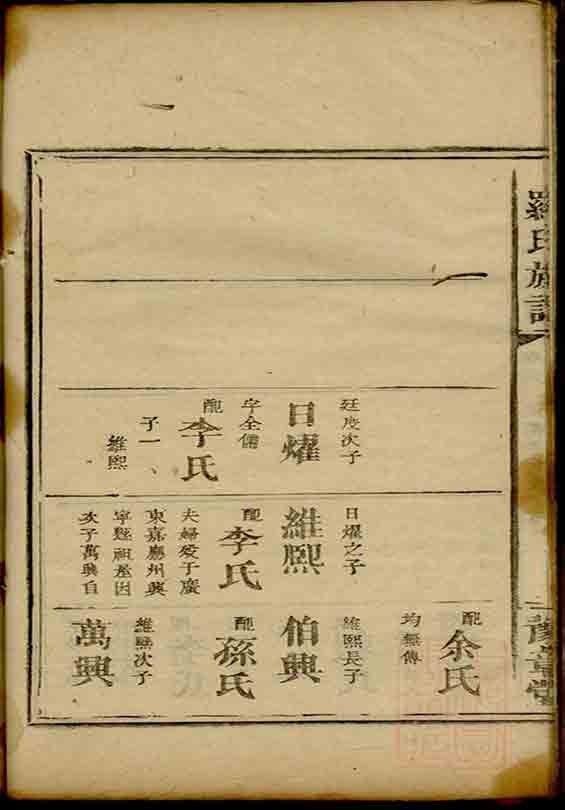 羅氏族譜
豫章堂
廷度次子
日燿
字全備
配
李氏
子一、
維熙
日燿之子
維熙
配
李氏
夫婦歿于廣
東嘉應州興
寧縣祖塋因
次子萬興自
配
余氏
均無傳
維熙長子
伯興
配
孫氏
維熙次子
萬興